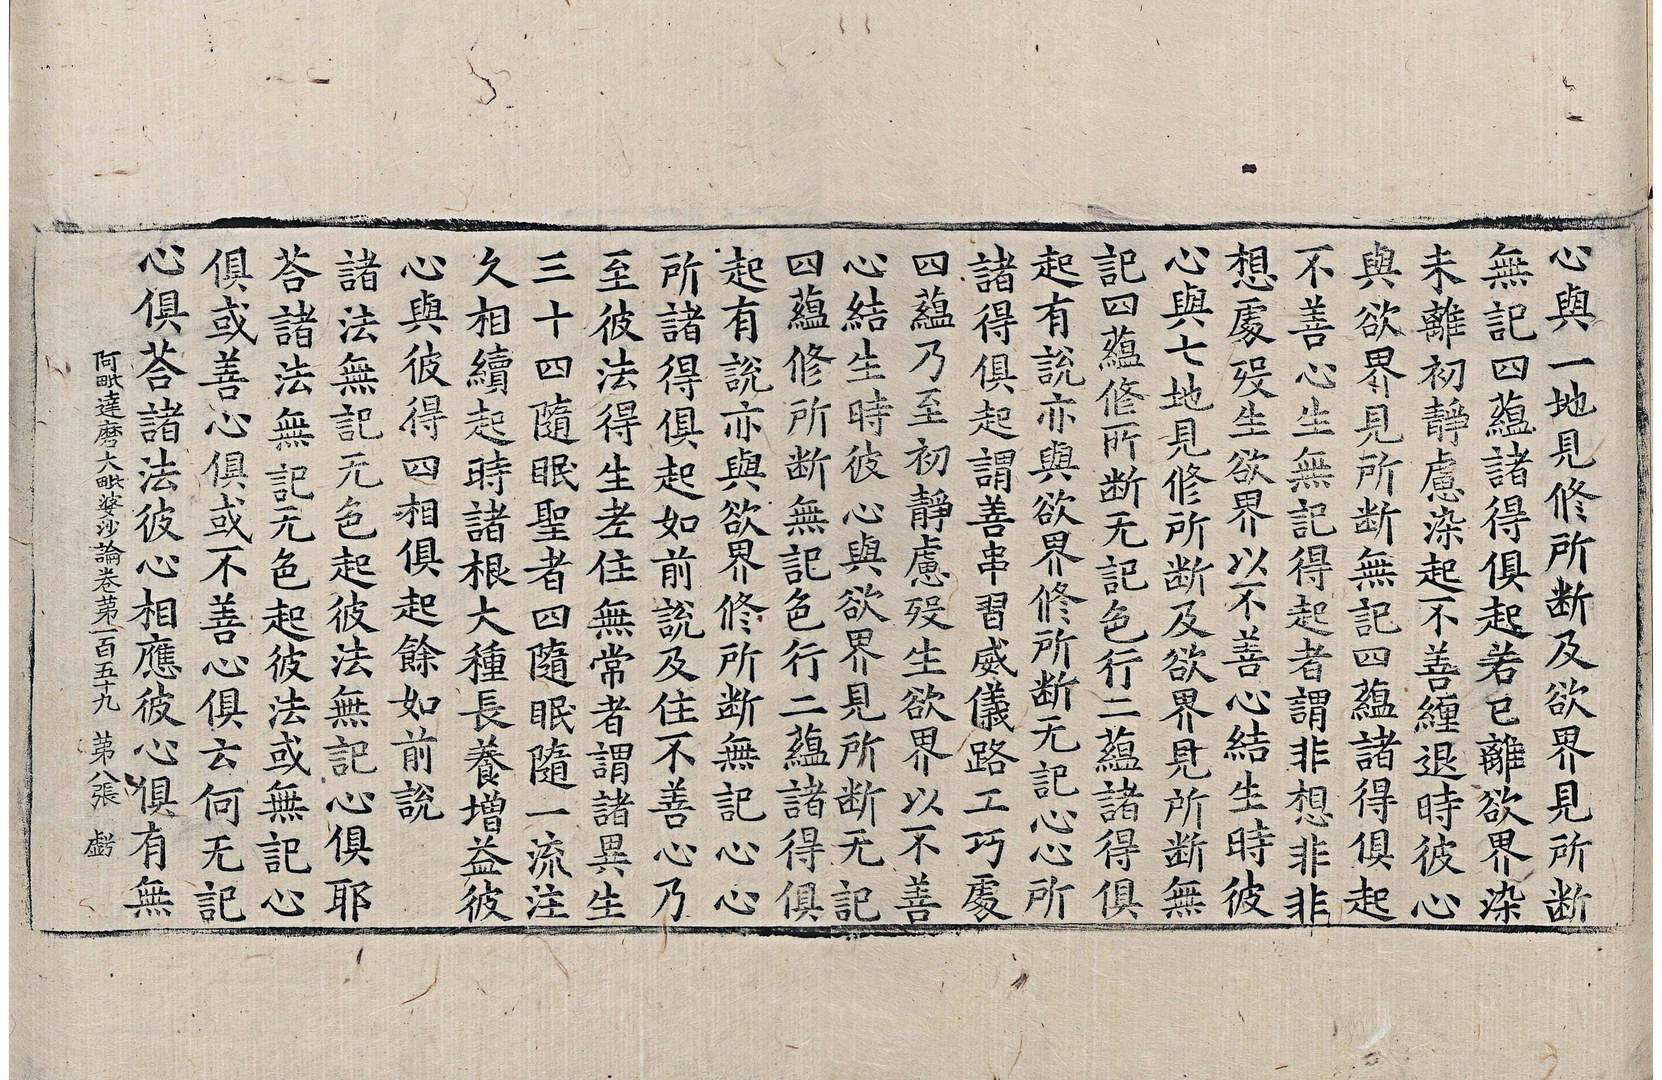 心與一地見修所断及欲界見所断
無記四蘊諸得俱起若已離欲界染
未離初靜慮染起不善纏退時彼心
與欲界見所断無記四蘊諸得俱起
不善心生無記得起者謂非想非非
想處歿生欲界以不善心結生時彼
心與七地見修所断及欲界見所断無
記四蘊修所断无記色行二蘊諸得俱
起有說亦與欲界修所断无記心心所
諸得俱起謂善串習威儀路工巧處
四蘊乃至初靜慮歿生欲界以不善
心結生時彼心與欲界見所断无記
四蘊修所断無記色行二蘊諸得俱
起有說亦與欲界修所断無記心心
所諸得俱起如前說及住不善心乃
至彼法得生老住無常者謂諸異生
三十四隨眠聖者四隨眠隨一流注
久相續起時諸根大種長養增益彼
心與彼得四相俱起餘如前說
諸法無記无色起彼法無記心俱耶
荅諸法無記无色起彼法或無記心
俱或善心俱或不善心俱云何无記
心俱荅諸法彼心相應彼心俱有無
阿毗達磨大毗婆沙論卷第一百五十九 第八張 虧